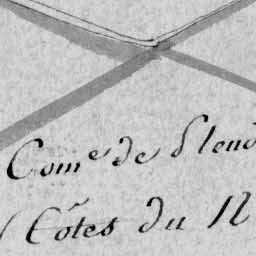 Com.e de Pleu
Côtes du N